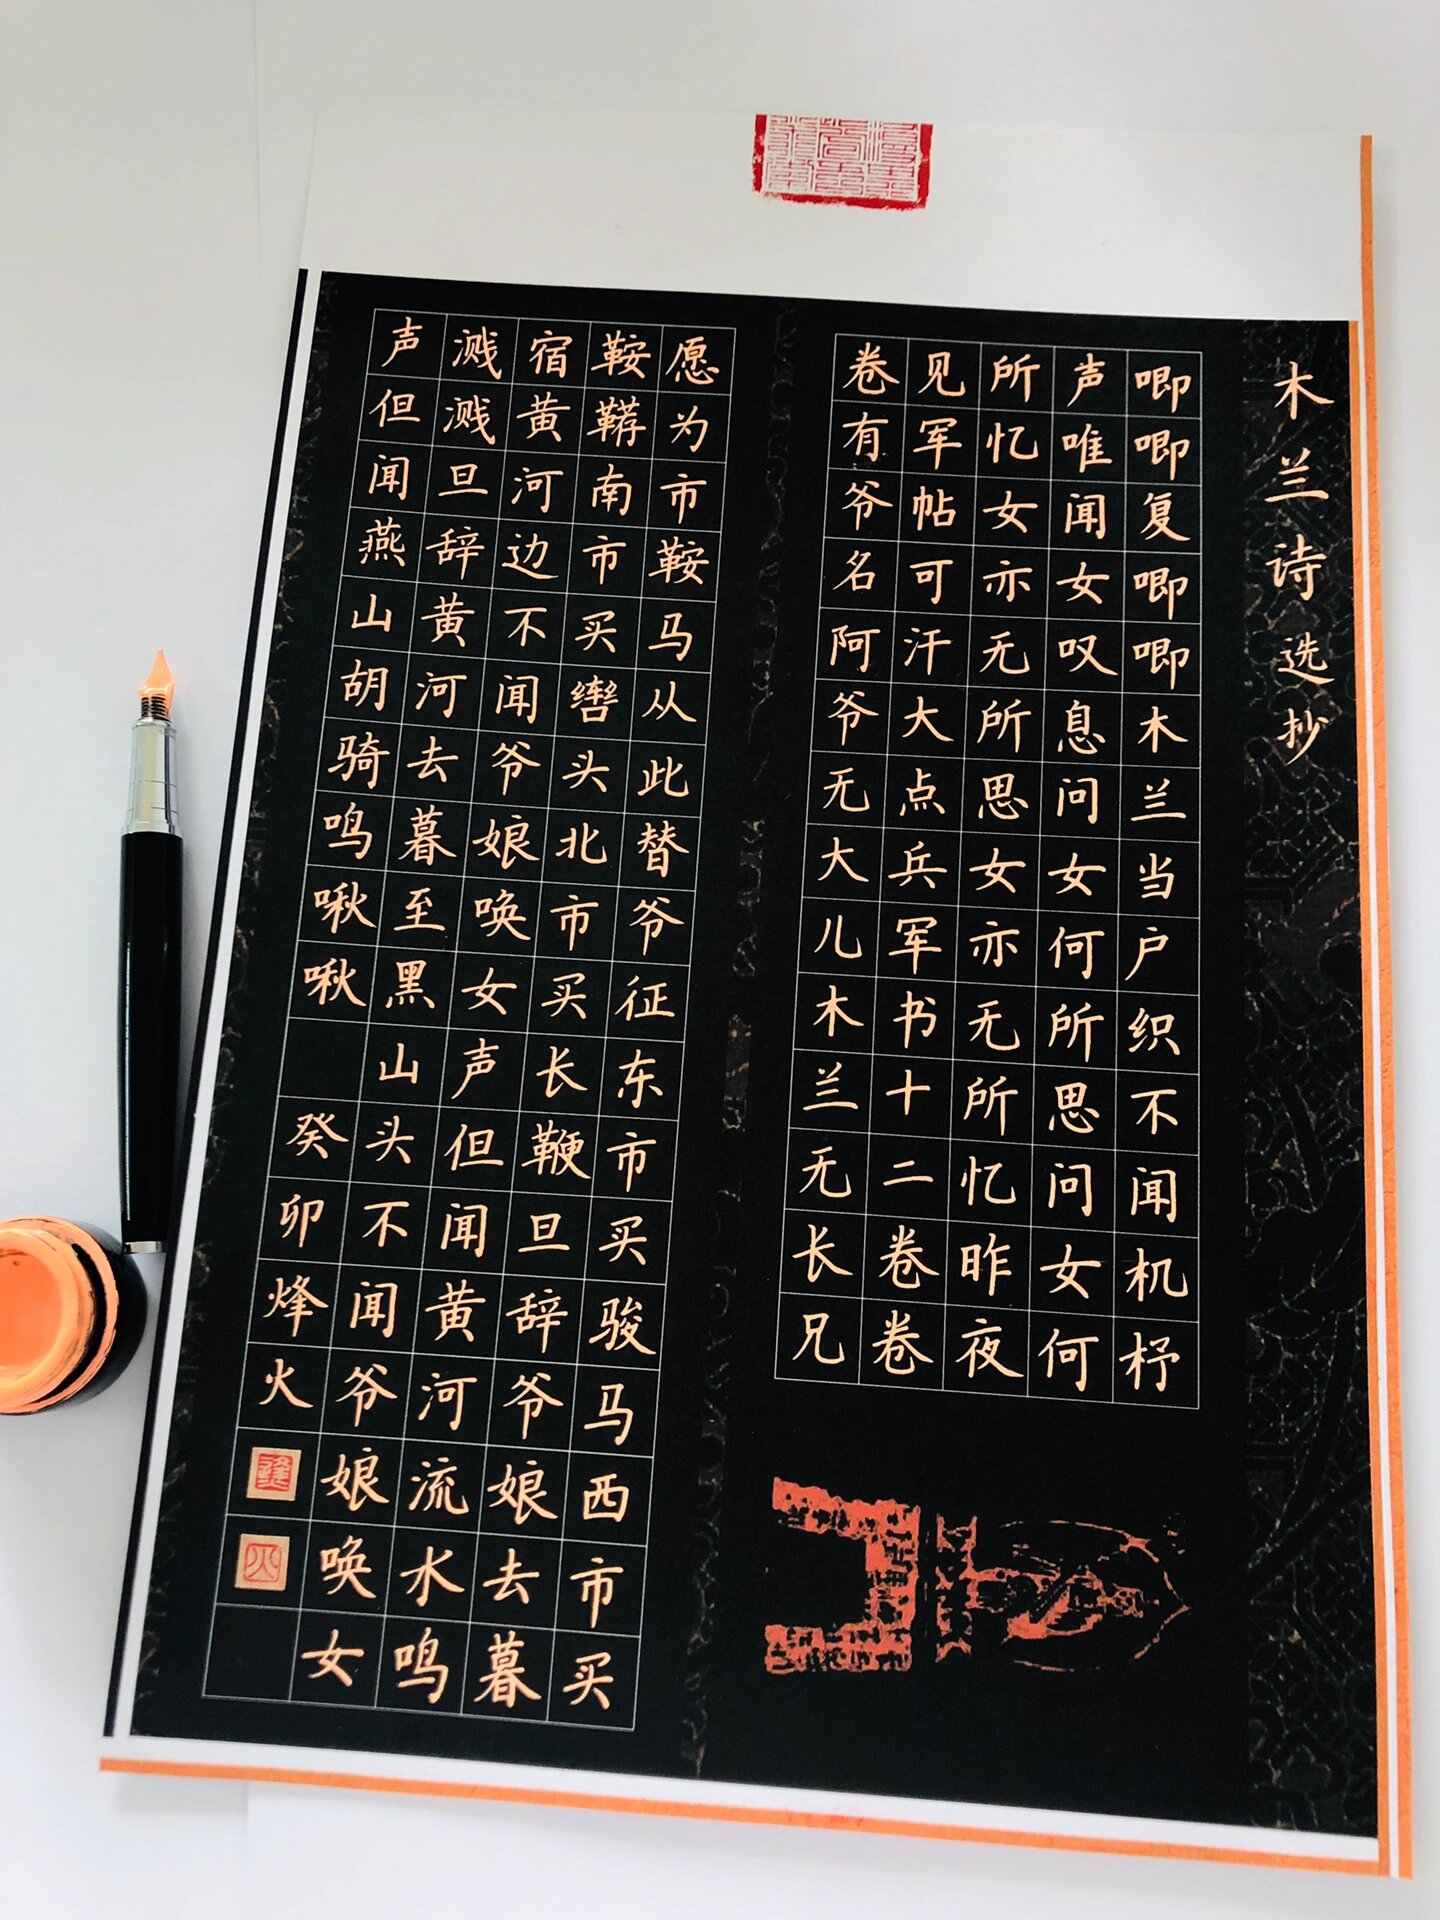 木兰诗 选抄
唧唧复唧唧木兰当户织不闻机杼
声唯闻女叹息问女何所思问女何
所忆女亦无所思女亦无所忆昨夜
见军帖可汗大点兵军书十二卷卷
卷有爷名阿爷无大儿木兰无长兄
愿为市鞍马从此替爷征东市买骏马西市买
鞍鞯南市买辔头北市买长鞭旦辞爷娘去暮
宿黄河边不闻爷娘唤女声但闻黄河流水鸣
溅溅旦辞黄河去暮至黑山头不闻爷娘唤女
声但闻燕山胡骑鸣啾啾 癸卯烽火
火